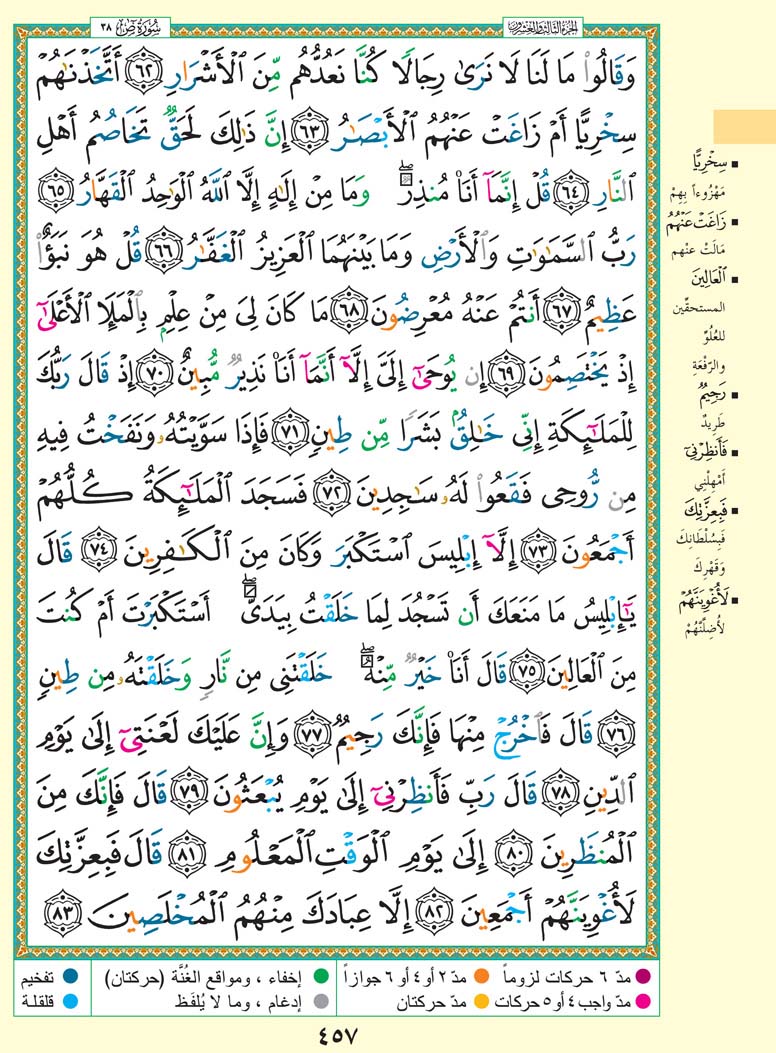 سُورَةُ صٓ ٣٨
الجزء الثالث والعشرون
وَقَالُوا۟ مَا لَنَا لَا نَرَىٰ رِجَالًا كُنَّا نَعُدُّهُم مِّنَ ٱلْأَشْرَارِ ﴿٦٢﴾ أَتَّخَذْنَٰهُمْ
سِخْرِيًّا أَمْ زَاغَتْ عَنْهُمُ ٱلْأَبْصَٰرُ ﴿٦٣﴾ إِنَّ ذَٰلِكَ لَحَقٌّ تَخَاصُمُ أَهْلِ
ٱلنَّارِ ﴿٦٤﴾ قُلْ إِنَّمَآ أَنَا۠ مُنذِرٌ ۖ وَمَا مِنْ إِلَٰهٍ إِلَّا ٱللَّهُ ٱلْوَٰحِدُ ٱلْقَهَّارُ ﴿٦٥﴾
رَبُّ ٱلسَّمَٰوَٰتِ وَٱلْأَرْضِ وَمَا بَيْنَهُمَا ٱلْعَزِيزُ ٱلْغَفَّٰرُ ﴿٦٦﴾ قُلْ هُوَ نَبَؤٌا۟
عَظِيمٌ ﴿٦٧﴾ أَنتُمْ عَنْهُ مُعْرِضُونَ ﴿٦٨﴾ مَا كَانَ لِىَ مِنْ عِلْمٍۭ بِٱلْمَلَإِ ٱلْأَعْلَىٰٓ
إِذْ يَخْتَصِمُونَ ﴿٦٩﴾ إِن يُوحَىٰٓ إِلَىَّ إِلَّآ أَنَّمَآ أَنَا۠ نَذِيرٌ مُّبِينٌ ﴿٧٠﴾ إِذْ قَالَ رَبُّكَ
لِلْمَلَٰٓئِكَةِ إِنِّى خَٰلِقٌۢ بَشَرًا مِّن طِينٍ ﴿٧١﴾ فَإِذَا سَوَّيْتُهُۥ وَنَفَخْتُ فِيهِ
مِن رُّوحِى فَقَعُوا۟ لَهُۥ سَٰجِدِينَ ﴿٧٢﴾ فَسَجَدَ ٱلْمَلَٰٓئِكَةُ كُلُّهُمْ
أَجْمَعُونَ ﴿٧٣﴾ إِلَّآ إِبْلِيسَ ٱسْتَكْبَرَ وَكَانَ مِنَ ٱلْكَٰفِرِينَ ﴿٧٤﴾ قَالَ
يَٰٓإِبْلِيسُ مَا مَنَعَكَ أَن تَسْجُدَ لِمَا خَلَقْتُ بِيَدَىَّ ۖ أَسْتَكْبَرْتَ أَمْ كُنتَ
مِنَ ٱلْعَالِينَ ﴿٧٥﴾ قَالَ أَنَا۠ خَيْرٌ مِّنْهُ ۖ خَلَقْتَنِى مِن نَّارٍ وَخَلَقْتَهُۥ مِن طِينٍ
﴿٧٦﴾ قَالَ فَٱخْرُجْ مِنْهَا فَإِنَّكَ رَجِيمٌ ﴿٧٧﴾ وَإِنَّ عَلَيْكَ لَعْنَتِىٓ إِلَىٰ يَوْمِ
ٱلدِّينِ ﴿٧٨﴾ قَالَ رَبِّ فَأَنظِرْنِىٓ إِلَىٰ يَوْمِ يُبْعَثُونَ ﴿٧٩﴾ قَالَ فَإِنَّكَ مِنَ
ٱلْمُنظَرِينَ ﴿٨٠﴾ إِلَىٰ يَوْمِ ٱلْوَقْتِ ٱلْمَعْلُومِ ﴿٨١﴾ قَالَ فَبِعِزَّتِكَ
لَأُغْوِيَنَّهُمْ أَجْمَعِينَ ﴿٨٢﴾ إِلَّا عِبَادَكَ مِنْهُمُ ٱلْمُخْلَصِينَ ﴿٨٣﴾
▪ سِخْرِيًّا
مَهْزُوءاً بِهِمْ
▪ زَاغَتْ عَنْهُمُ
مَالَتْ عنهم
▪ ٱلْعَالِينَ
المستحقِّين
للعُلُوِّ
والرِّفْعَةِ
▪ رَجِيمٌ
طَرِيدٌ
▪ فَأَنظِرْنِىٓ
أَمْهِلْنِي
▪ فَبِعِزَّتِكَ
فَبِسُلْطَانِكَ
وَقَهْرِكَ
▪ لَأُغْوِيَنَّهُمْ
لأُضِلَّنَّهُمْ
مدّ ٦ حركات لزوماً
مدّ ٢ أو ٤ أو ٦ جوازاً
إخفاء ، ومواقع الغُنَّة (حركتان)
تفخيم
مدّ واجب ٤ أو ٥ حركات
مدّ حركتان
إدغام ، وما لا يُلفَظ
قلقلة
٤٥٧